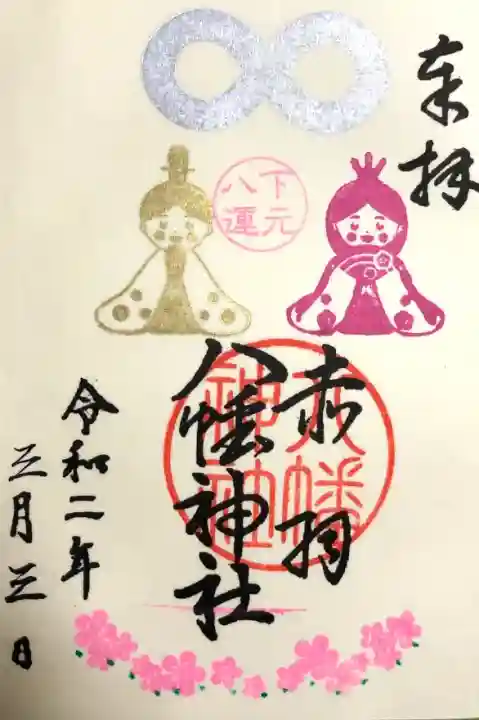 奉拝
下元
八運
赤羽
八幡神社
八幡
神社
令和二年
三月三日